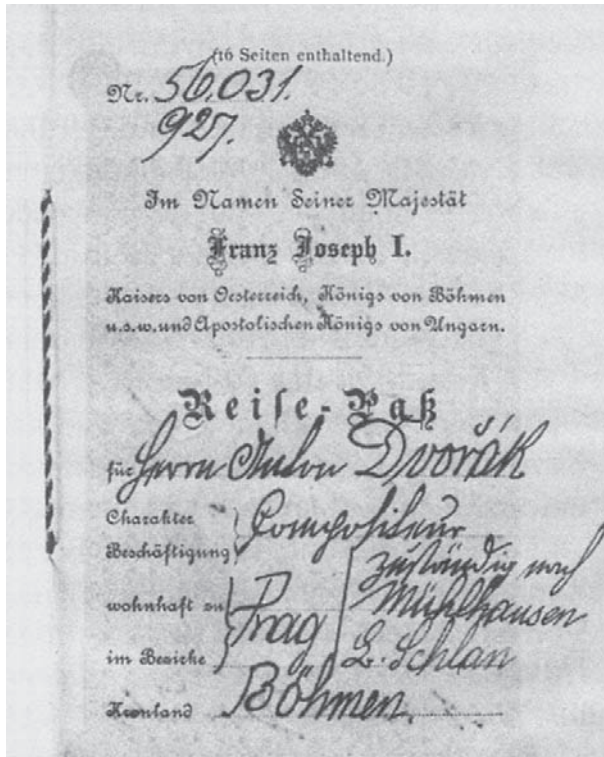 (16 Seiten enthaltend.)
Nr. 56.031.
927.
Im Namen Seiner Majestät
Franz Joseph I.
Kaisers von Oesterreich, Königs von Böhmen
u.s.w. und Apostolischen Königs von Ungarn.
Reise-Paß
für Herrn Anton Dvořák
Charakter
Beschäftigung
Compositeur
wohnhaft zu
im Bezirke
Prag
zuständig nach
Mühlhausen
B. Schlan
Kronland Böhmen.